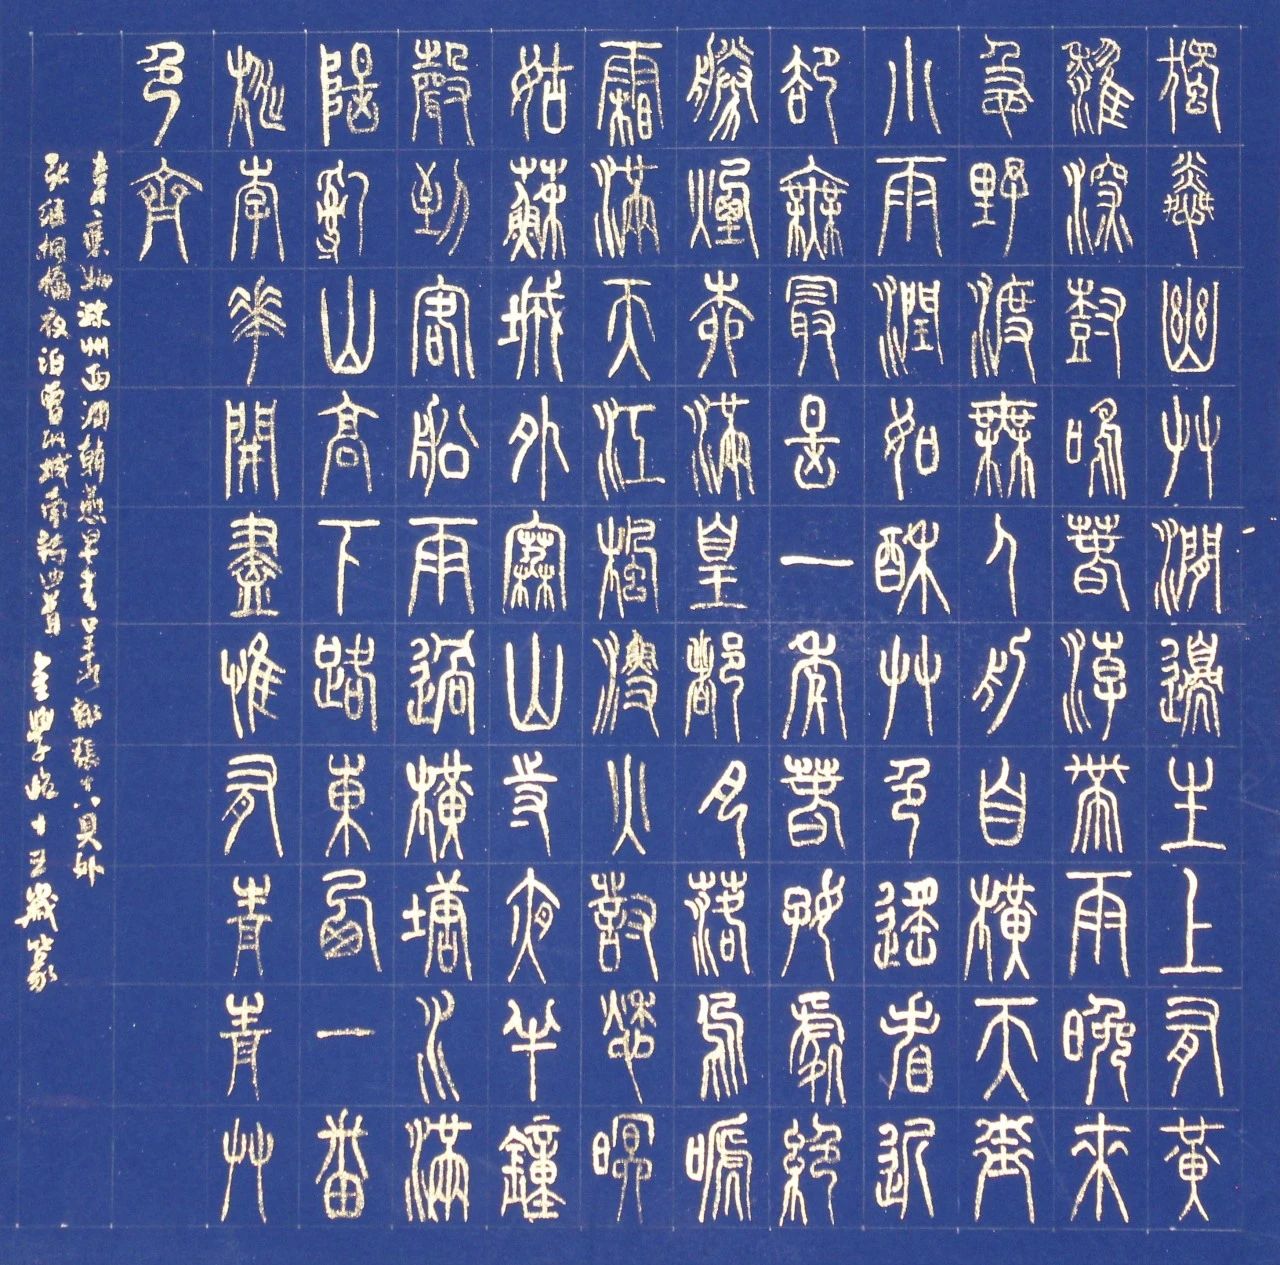 獨憐幽艸澗邊生上有黃
鸝深樹鳴春潮帶雨晚來
急野渡無人舟自橫天街
小雨潤如酥艸色遙看近
却無最是一年春好處絕
勝煙柳滿皇都月落烏啼
霜滿天江楓漁火對愁眠
姑蘇城外寒山寺夜半鐘
聲到客船雨過橫塘水滿
隄亂山高下路東西一番
桃李花開盡惟有青青艸
色齊
韋應物滁州西澗韓愈早春呈水部張十八員外
張繼楓橋夜泊曾鞏城南詩四首 金學 十三歲篆